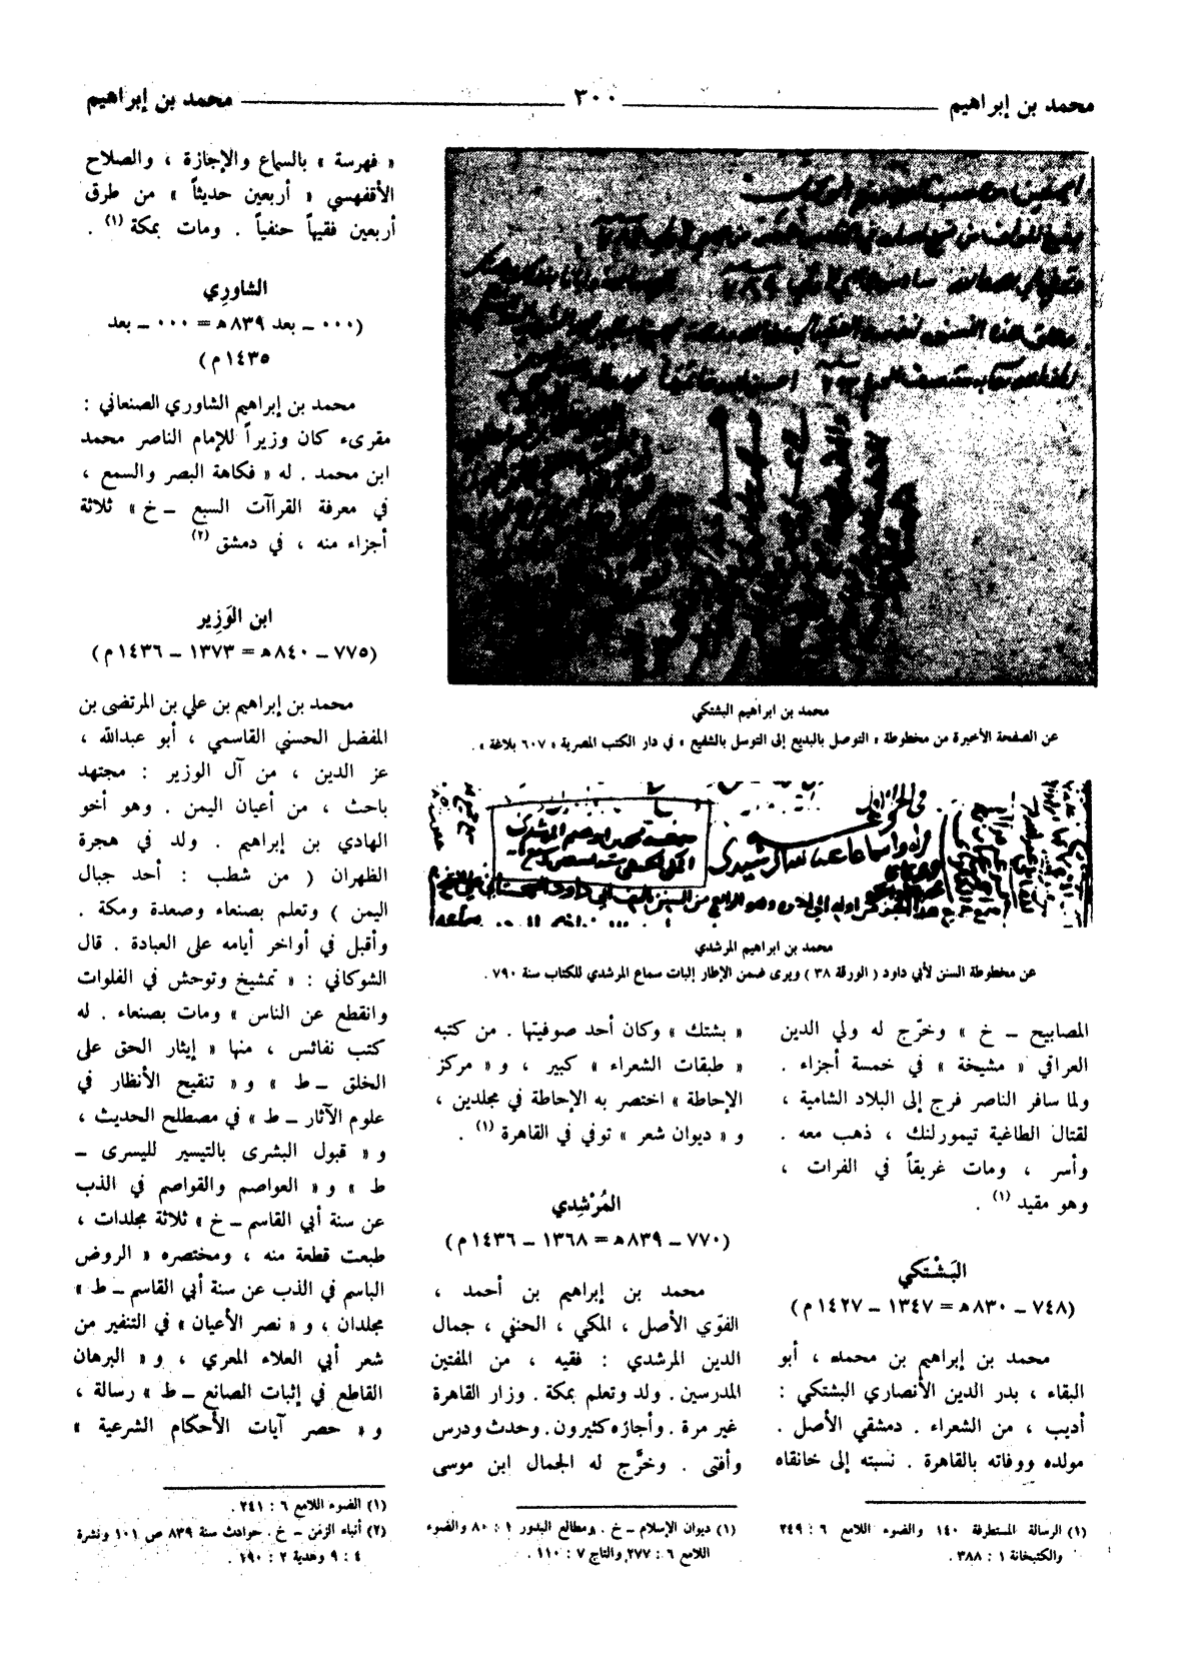 محمد بن إبراهيم ــــ ٣٠٠ ــــ محمد بن إبراهيم
محمد بن ابراهيم البشتكي
عن الصفحة الأخيرة من مخطوطة « التوصل بالبديع إلى التوسل بالشفيع » في دار الكتب المصرية « ٦٠٧ بلاغة » .
محمد بن ابراهيم المرشدي
عن مخطوطة السنن لأبي داود ( الورقة ٣٨ ) ويرى ضمن الإطار إثبات سماع المرشدي للكتاب سنة ٧٩٠ .
المصابيح ــ خ » وخرّج له ولي الدين
العراقي « مشيخة » في خمسة أجزاء .
ولما سافر الناصر فرج إلى البلاد الشامية ،
لقتال الطاغية تيمورلنك ، ذهب معه .
وأسر ، ومات غريقاً في الفرات ،
وهو مقيد (١) .
البَشْتكي
(٧٤٨ ــ ٨٣٠ هـ = ١٣٤٧ ــ ١٤٢٧ م)
محمد بن إبراهيم بن محمد ، أبو
البقاء ، بدر الدين الأنصاري البشتكي :
أديب ، من الشعراء . دمشقي الأصل .
مولده ووفاته بالقاهرة . نسبته إلى خانقاه
(١) الرسالة المستطرفة ١٤٠ والضوء اللامع ٦ : ٢٤٩
والكتبخانة ١ : ٣٨٨ .
« بشتك » وكان أحد صوفيتها . من كتبه
« طبقات الشعراء » كبير ، و « مركز
الإحاطة » اختصر به الإحاطة في مجلدين ،
و « ديوان شعر » توفي في القاهرة (١) .
المُرْشِدي
(٧٧٠ ــ ٨٣٩ هـ = ١٣٦٨ ــ ١٤٣٦ م)
محمد بن إبراهيم بن أحمد ،
الفوّي الأصل ، المكي ، الحنفي ، جمال
الدين المرشدي : فقيه ، من المفتين
المدرسين . ولد وتعلم بمكة . وزار القاهرة
غير مرة . وأجازه كثيرون . وحدث ودرس
وأفتى . وخرَّج له الجمال ابن موسى
(١) ديوان الإسلام ــ خ . ومطالع البدور ١ : ٨٠ والضوء
اللامع ٦ : ٢٧٧ والتاج ٧ : ١١٠ .
« فهرسة » بالسماع والإجازة ، والصلاح
الأقفهسي « أربعين حديثاً » من طرق
أربعين فقيهاً حنفياً . ومات بمكة (١) .
الشاوِري
(٠٠٠ ــ بعد ٨٣٩ هـ = ٠٠٠ ــ بعد
١٤٣٥ م)
محمد بن إبراهيم الشاوري الصنعاني :
مقرىء كان وزيراً للإمام الناصر محمد
ابن محمد . له « فكاهة البصر والسمع ،
في معرفة القراآت السبع ــ خ » ثلاثة
أجزاء منه ، في دمشق (٢)
ابن الوَزِير
(٧٧٥ ــ ٨٤٠ هـ = ١٣٧٣ ــ ١٤٣٦ م)
محمد بن إبراهيم بن علي بن المرتضى بن
المفضل الحسني القاسمي ، أبو عبدالله ،
عز الدين ، من آل الوزير : مجتهد
باحث ، من أعيان اليمن . وهو أخو
الهادي بن إبراهيم . ولد في هجرة
الظهران ( من شطب : أحد جبال
اليمن ) وتعلم بصنعاء وصعدة ومكة .
وأقبل في أواخر أيامه على العبادة . قال
الشوكاني : « تمشيخ وتوحش في الفلوات
وانقطع عن الناس » ومات بصنعاء . له
كتب نفائس ، منها « إيثار الحق على
الخلق ــ ط » و « تنقيح الأنظار في
علوم الآثار ــ ط » في مصطلح الحديث ،
و « قبول البشرى بالتيسير لليسرى ــ
ط » و « العواصم والقواصم في الذب
عن سنة أبي القاسم ــ خ » ثلاثة مجلدات ،
طبعت قطعة منه ، ومختصره « الروض
الباسم في الذب عن سنة أبي القاسم ــ ط »
مجلدان ، و « نصر الأعيان » في التنفير من
شعر أبي العلاء المعري ، و « البرهان
القاطع في إثبات الصانع ــ ط » رسالة ،
و « حصر آيات الأحكام الشرعية »
(١) الضوء اللامع ٦ : ٢٤١ .
(٢) أنباء الزمن ــ خ . حوادث سنة ٨٣٩ ص ١٠١ ونشرة
٤ : ٩ وهدية ٢ : ١٩٠ .